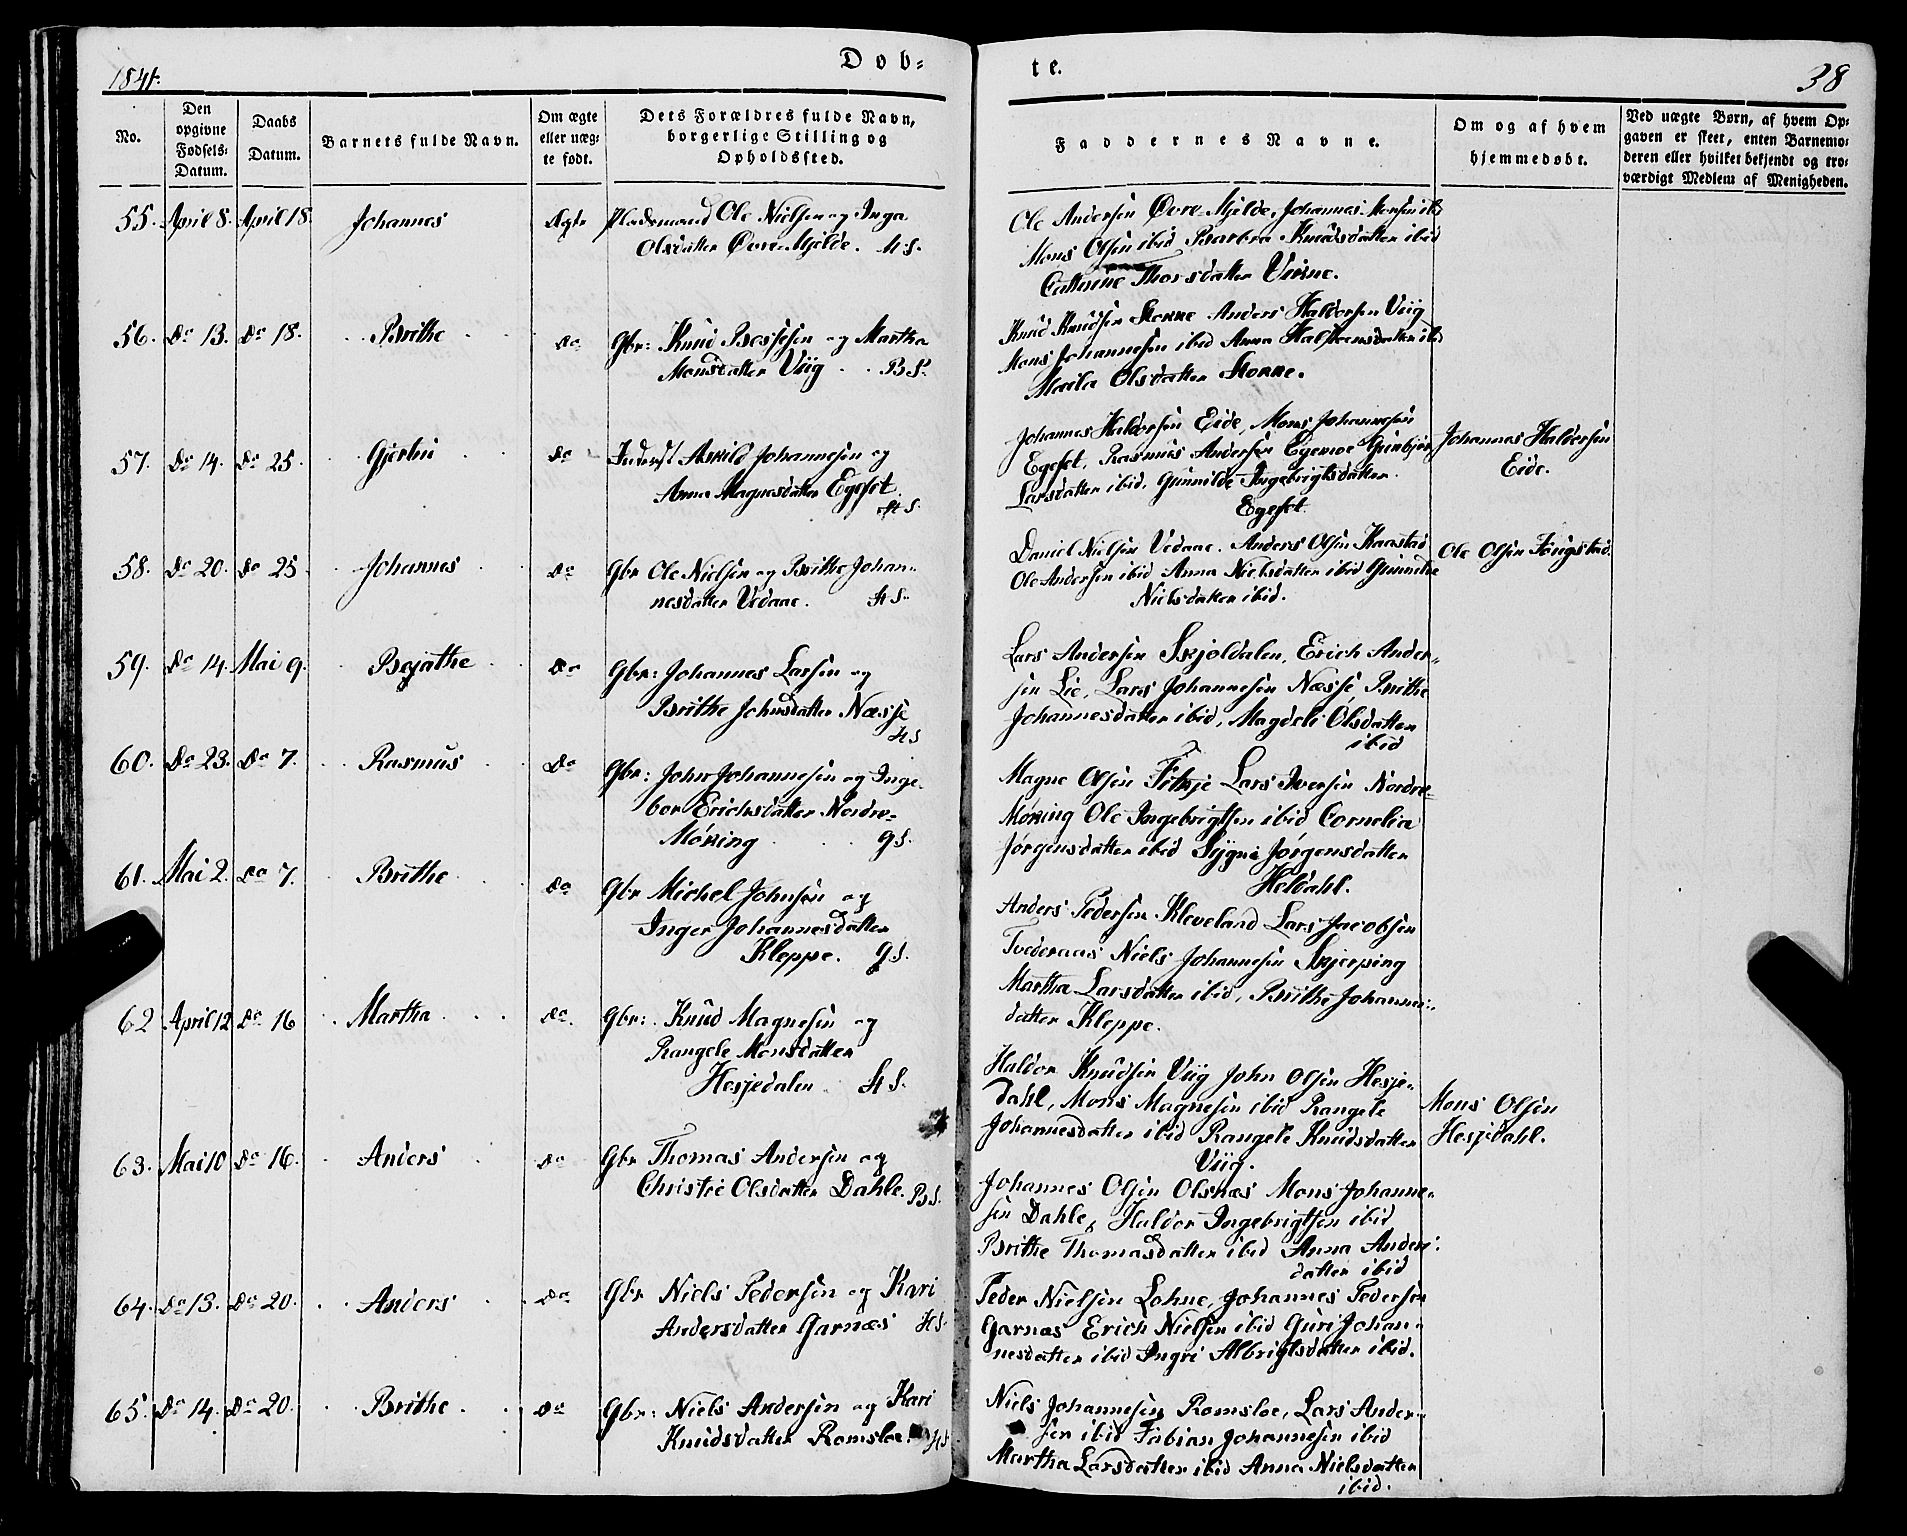 1841.
Døb-
te.
38
No.
Den opgivne Fødsels-Datum.
Daabs Datum.
Barnets fulde Navn.
Om ægte eller uægte født.
Dets Forældres fulde Navn, borgerlige Stilling og Opholdssted.
Faddernes Navne.
Om og af hvem hjemmedøbt.
Ved uægte Børn, af hvem Opgaven er skeet, enten Barnemoderen eller hvilket bekjendt og troværdigt Medlem af Menigheden.
55. April 8. April 18. Johannes Ægte Pladsmand Ole Nielsen og Inga
Olsdatter Øvre-Mjelde. H.S.
Ole Andersen Øvre-Mjelde, Johannes Monsen ib
Mons Olsen ibid Barbra Knudsdatter ibid
Catherine Thorsdatter
56. Do 13. Do 18. Brithe Do Gbr: Knud Bessesen og Martha
Monsdatter Viig B.S.
Knud Knudsen Anders Haldorsen Viig
Mons Johannesen ibid Anna Halstensdatter ib
Marta Olsdatter
57. Do 14. Do 25. Gjertru Do Inderst Askild Johannesen og
Anna Magnesdatter Egeset
H.S.
Johannes Haldorsen Eide, Mons Johannesen
Egeset, Rasmus Andersen Egemoe Gunbjør
Larsdatter ibid, Gunnilde Ingebrigtsdatter
Egeset
Johannes Haldorsen
Eide.
58. Do 20. Do 25 Johannes Do Gbr Ole Nielsen og Brithe Johan-
nesdatter Vedaae. H.S.
Daniel Nielsen Vedaae. Anders Olsen Kaarstad
Ole Andersen ibid Anna Nielsdatter ibid Gunnilde
Nielsdatter ibid.
Ole Olsen
59. Do 14. Mai 9. Do Gbr: Johannes Larsen og
Brithe Johnsdatter Næsse
H.S
Lars Andersen Skjoldalen, Erich Ander-
sen Lie, Lars Johannesen Næsse, Brithe
Johannesdatter ibid, Magdeli Olsdatter
ibid
60. Do 23. Do 7. Rasmus Do Gbr: John Johannesen og Inge-
bor Erichsdatter Nordre-
Møring G.S.
Magne Olsen Fitsje Lars Iversen Nordre-
Møring Ole Ingebrigtsen ibid Cornelia
Jørgensdatter ibid Sygni Jørgensdatter
Heldahl.
61. Mai 2. Do 7. Brithe Do Gbr Michel Johnsen og
Inger Johannesdatter
Kleppe. G.S.
Anders Pedersen Kleveland Lars Jacobsen
Tvederaas Niels Johannesen Skjerping
Martha Larsdatter ibid, Brithe Johannes-
datter Kleppe.
62 April 12 Do 16 Martha Do. Gbr: Knud Magnesen og
Rangele Monsdatter
Hesjedalen H.S.
Haldor Knudsen Viig John Olsen Hesje-
dahl, Mons Magnesen ibid Rangele
Johannesdatter ibid Rangele Knudsdatter
Viig.
Mons Olsen
Hesjedahl.
63. Mai 10 Do 16. Anders Do Gbr Thomas Andersen og
Christie Olsdatter Dahle. B.S.
Johannes Olsen Olsnæs Mons Johanne-
sen Dahle, Haldor Ingebrigtsen ibid
Brithe Thomasdatter ibid Anna Anders-
datter ibid
64. Do 13. Do 20. Anders Do Gbr Niels Pedersen og Kari
Andersdatter Garnæs H.S.
Peder Nielsen Lohne, Johannes Pedersen
Garnæs Erich Nielsen ibid Guri Johan-
nesdatter ibid Ingri Albrigtsdatter ibid.
65. Do 14. Do 20. Brithe Do Gbr: Niels Andersen og Kari
Knudsdatter Romsloe. H.S
Niels Johannesen Romsloe, Lars Ander-
sen ibid Fabian Johannesen ibid
Martha Larsdatter ibid Anna Nielsdatter
ibid.